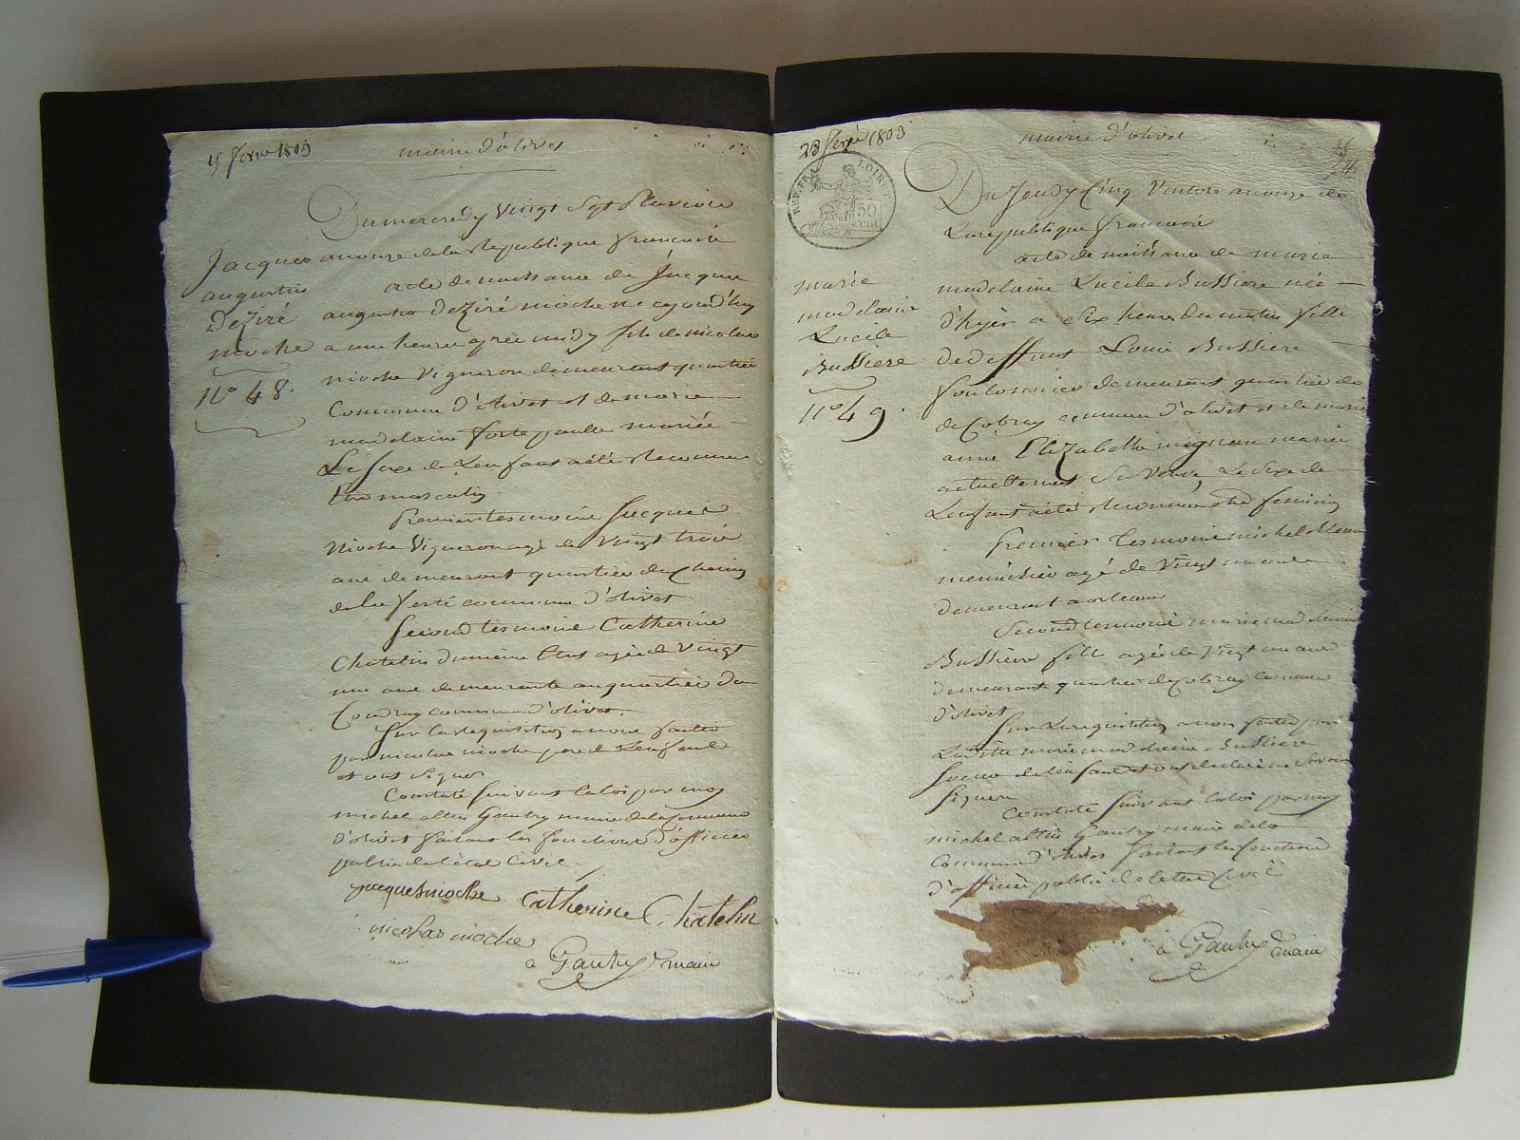 mairie d'olivet
Du mercredy Vingt Sept Pluviose
an onze de la Republique françoise
acte de naissance de Jacque
augustin Deziré nioche né cejourd'huy
a une heure après midy fils de nicolas
nioche Vigneron demeurant quartier
Commune d'olivet et de marie
madelaine mariée
Le sexe de Lenfant a été Reconnu
être masculin
Premier tesmoins Jacques
Nioche Vigneron agé de Vingt trois
ans demeurant quartier du
de la ferté commune d'olivet
Second tesmoins Catherine
Chatelin agée de Vingt
un ans demeurante au quartier du
Coudray commune d'olivet.
Sur la requisition a nous faitte
par nicolas nioche père de Lenfant
et ont signés
Constaté suivant la loi par moy
michel altin Gautry maire de la commune
d'olivet faisant les fonctions d'officier
public de l'état Civil
jacques nioche Catherine Chatelin
nicolas nioche
a Gautry maire
Jacques
augustin
Deziré
nioche
No 48.
mairie d'olivet
REP. FRA LOIRET
50
Du Jeudy Cinq Ventose an onze de
La republique francoise
acte de naissance de marie
madelaine Lucile Bussiere née
d'hyer a Six heures du matin fille
de deffunt Louis Bussiere
demeurant quartier de
commune d'olivet et de marie
anne Elizabethe mignan mariée
actuellement Sa Veuve, Le Sexe de
Lenfant a été Reconnu être feminin
premier tesmoins michel
menuisier agé de Vingt
demeurant a orleans
Second tesmoins marie madelaine
Bussiere fille agée de Vingt un ans
demeurant quartier de commune
d'olivet
Sur La requisition a nous faitte par
Ladite marie madelaine Bussiere
Soeur de lenfant
signer
Constaté Suivant la loi par moy
michel altin Gautry maire de la
Commune d'olivet faisant les fonctions
d'officier public de l'état Civil
a Gautry maire
marie
madelaine
Lucile
Bussiere
No 49.